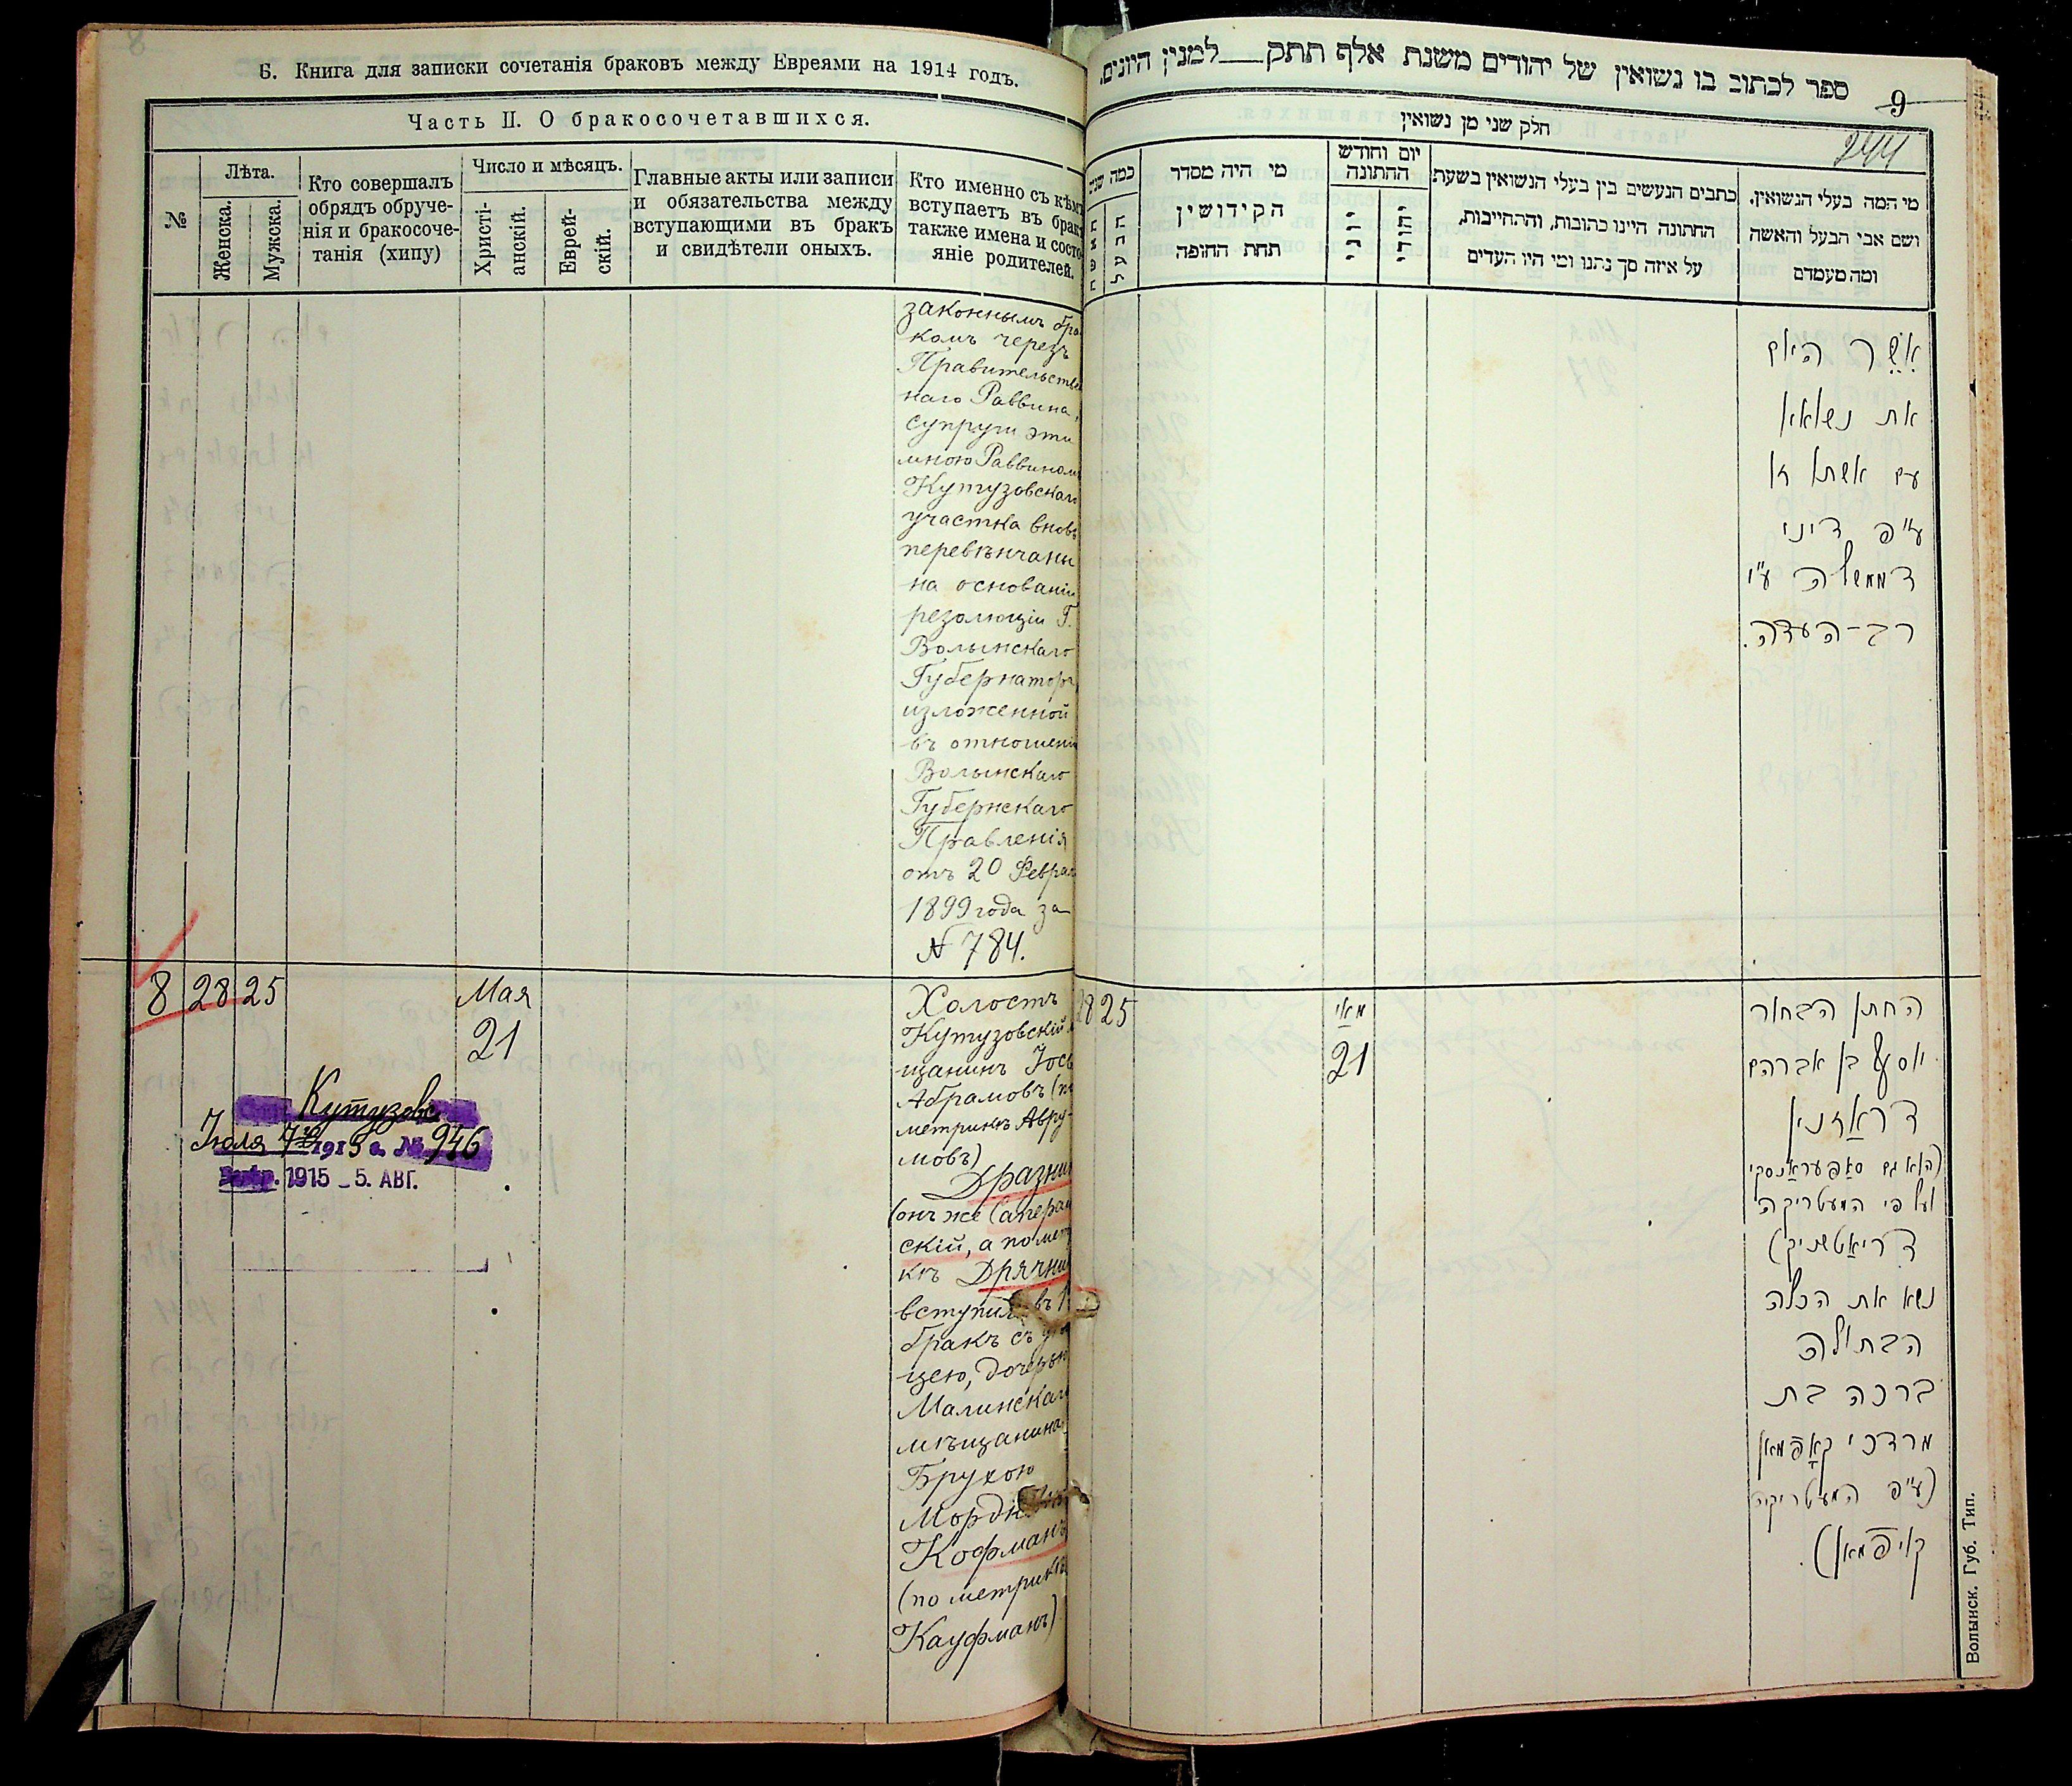 Б. Книга для записки сочетанія браковъ между Евреями на 1914 годъ.
Часть II. О бракосочетавшихся.
№
Лѣта.
Женска.
Мужска.
Кто совершалъ
обрядъ обруче-
нія и бракосоче-
танія (хипу)
Число и мѣсяцъ.
Христі-
анскій.
Еврей-
скій.
Главные акты или записи
и обязательства между
вступающими въ бракъ
и свидѣтели оныхъ.
Кто именно съ кѣмъ
вступаетъ въ бракъ
также имена и состо-
яніе родителей.
законнымъ бра
комъ черезъ
Правительствен
наго Раввина,
супруги эти
мною Раввиномъ
Кутузовскаго
участка вновь
перевѣнчаны
на основаніи
резолюціи Г.
Волынскаго
Губернатора,
изложенной
въ отношеніи
Волынскаго
Губернскаго
Правленія
отъ 20 Феврал
1899 года за
№ 784.
8 28 25
Мая
21
Кутузовс
Іюля 7го 1915 г. № 946
1915 - 5. АВГ.
Холостъ
Кутузовскій м
щанинъ Іось
Абрамовъ (по
метрикѣ Авру-
мовъ)
Дразни
(онъ же Саперан
скій, а по метр
кѣ Дрячни
вступил въ 1
бракъ съ
цею, дочерью
Малинскаго
мѣщанина
Брухою
Мордк
Кофманъ
(по метрикѣ
Кауфманъ)
ספר לכתוב בו נשואין של יהודים משנת אלף תתק למנין היונים.
9
244
חלק שני מן נשואין
כמה שנים
האשה
הבעל
מי היה מסדר
הקידושין
תחת החופה
יום וחודש
החתונה
כתבים הנעשים בין בעלי הנשואין בשעת
החתונה היינו כתובות, וההתחייבות,
על איזה סך נתנו ומי היו העדים
מי המה בעלי הנשואין,
ושם אבי הבעל והאשה
ומה מעמדם
אשר האם
את נשואו
עם אשתו זו
ע"פ דיני
דממשלה ע"י
רב-העדה.
28 25
מאי
21
החתן הבחור
יוסעל בן אברהם
דראזנא
(הוא גם סאפעראנסקי
ועל פי המעטריקה
דריאטשניק)
נשא את הכלה
הבתולה
ברכה בת
מרדכי קאפמאן
(ע"פ המעטריקה
קויפמאן).
Волынск. Губ. Тип.